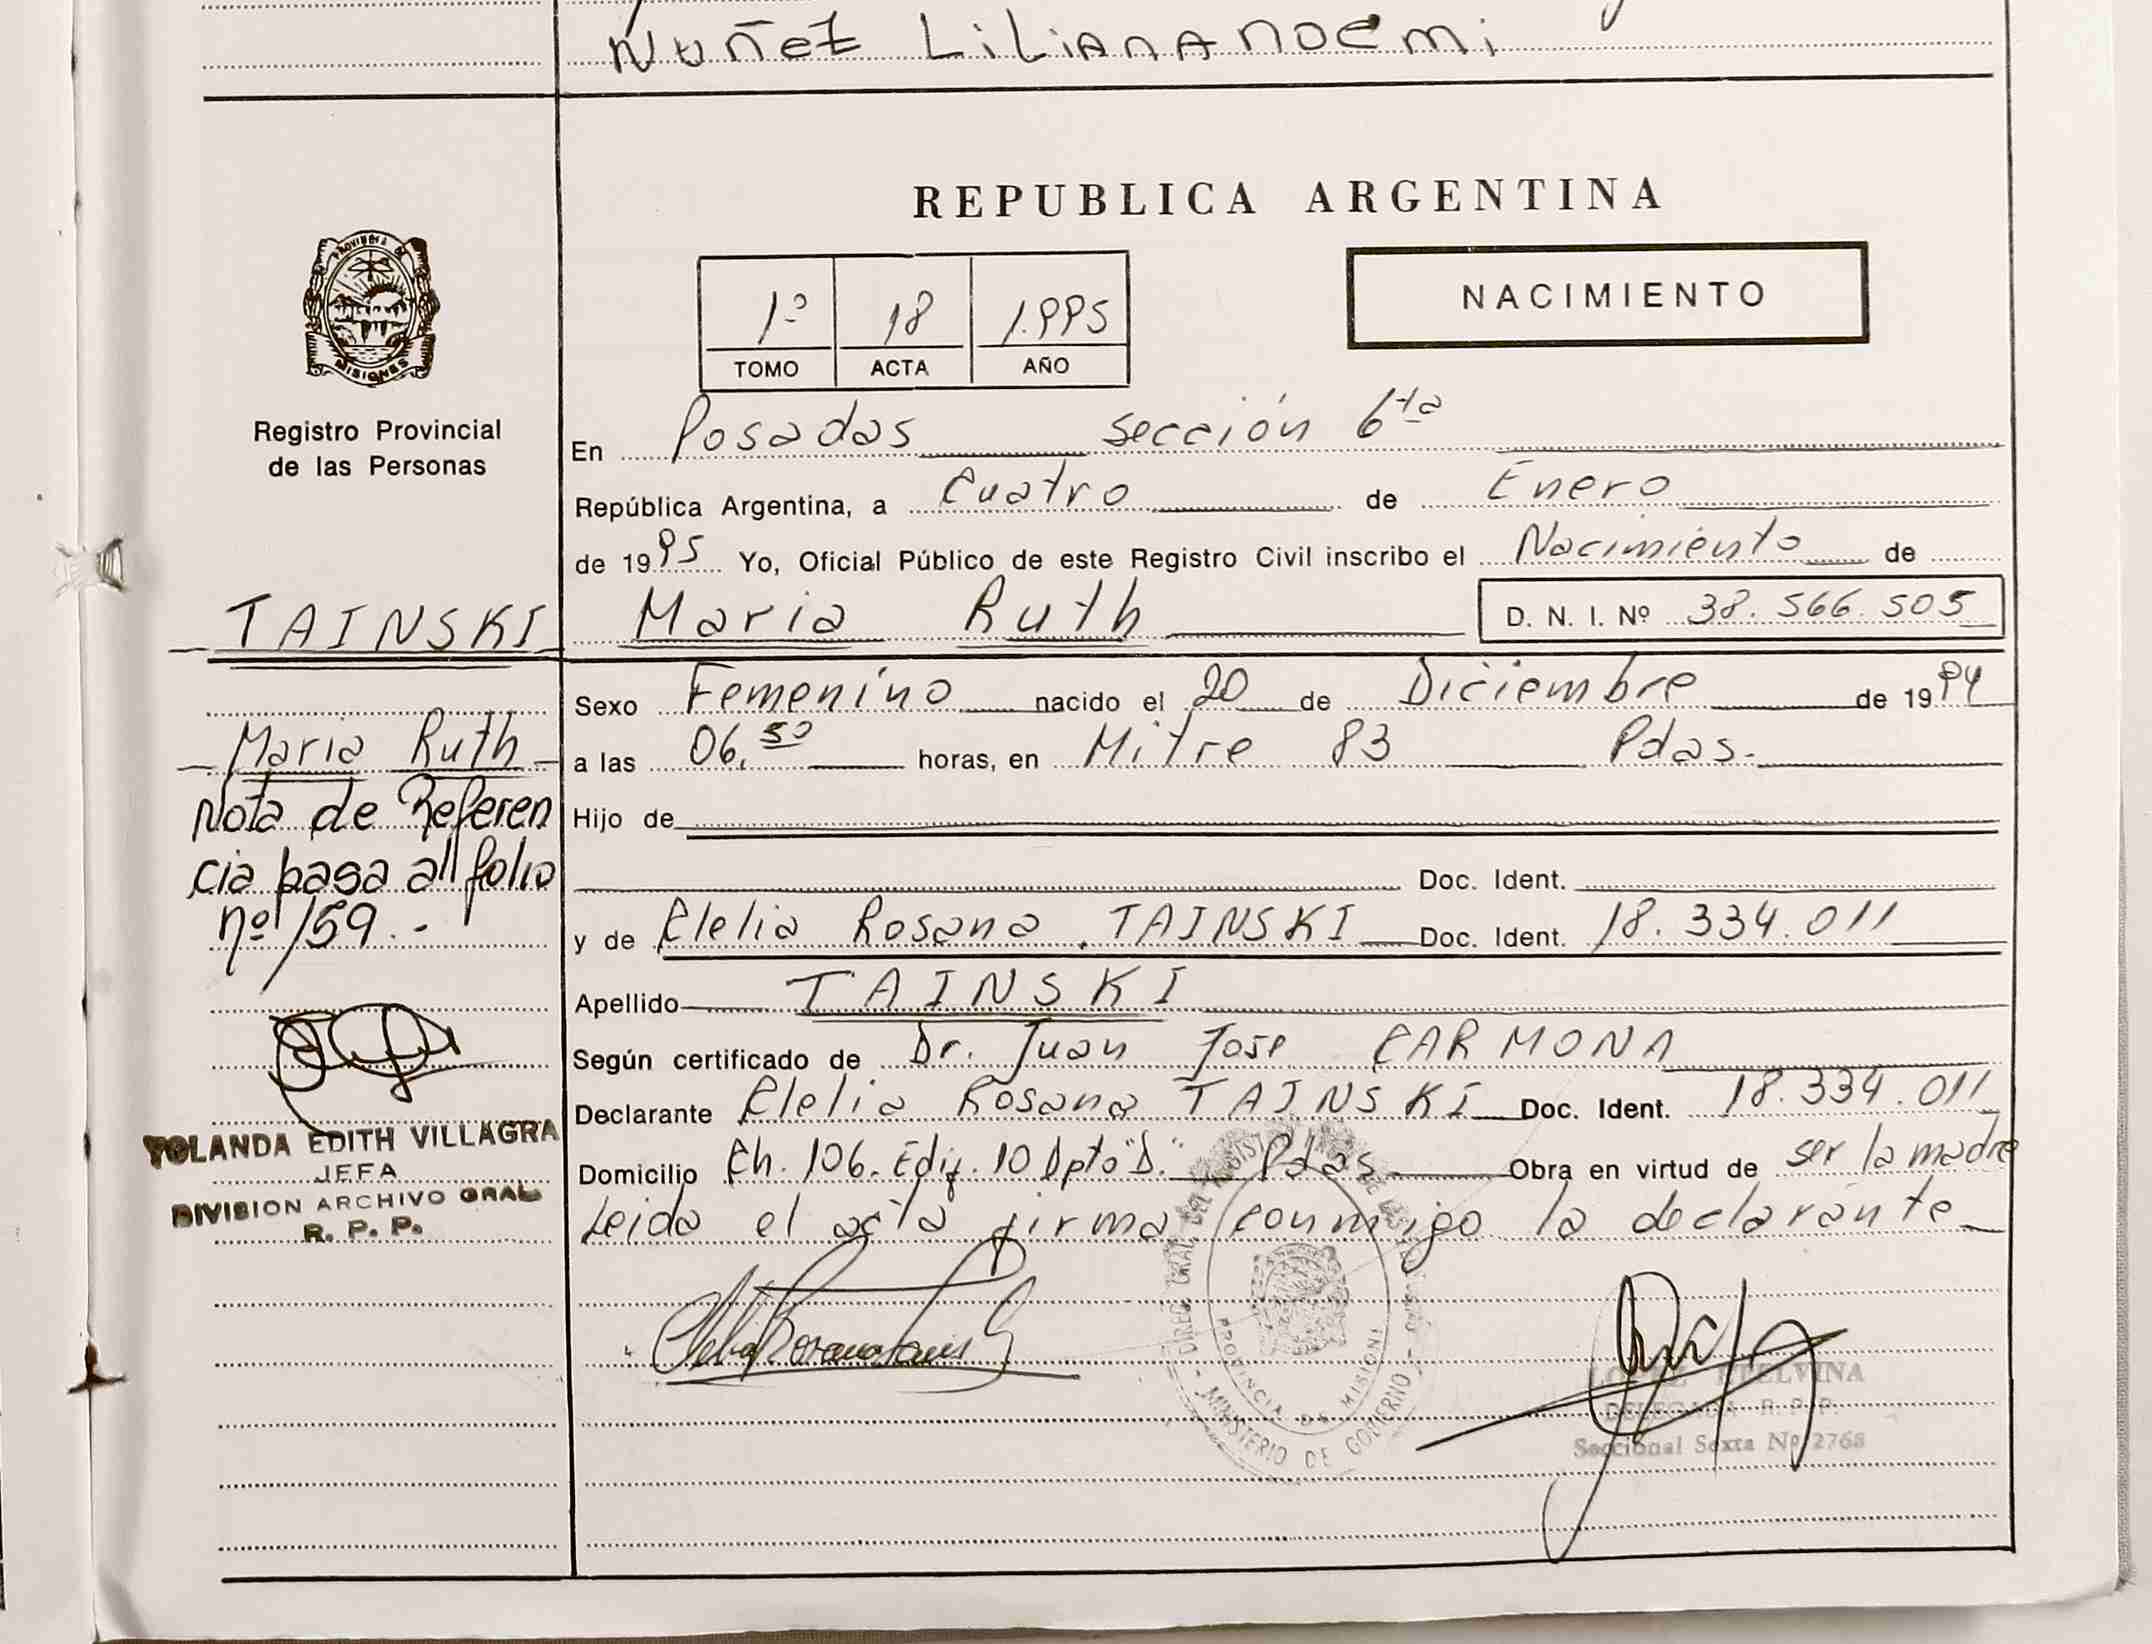 Nuñez Liliana Noemi
REPUBLICA ARGENTINA
PROVINCIA DE
MISIONES
Registro Provincial
de las Personas
1º 18 1.995
TOMO ACTA AÑO
NACIMIENTO
En Posadas sección 6ta
República Argentina, a Cuatro de Enero
de 1995 Yo, Oficial Público de este Registro Civil inscribo el Nacimiento de
TAINSKI Maria Ruth D. N. I. Nº 38.566.505
Sexo Femenino nacido el 20 de Diciembre de 1994
Maria Ruth
a las 06,50 horas, en Mitre 83 Pdas.
Nota de Referen
cia pasa all folio
nº 159.-
Hijo de
Doc. Ident.
y de Clelia Rosana TAINSKI Doc. Ident. 18.334.011
Apellido TAINSKI
Según certificado de Dr. Juan Jose CARMONA
Declarante Clelia Rosana TAINSKI Doc. Ident. 18.334.011
Domicilio Ch. 106. Edif. 10 Dpto "D." Pdas Obra en virtud de ser la madre
Leida el acta firma conmigo la declarante
YOLANDA EDITH VILLAGRA
JEFA
DIVISION ARCHIVO GRAL
R. P. P.
PROVINCIA DE MISIONES
MINISTERIO DE GOBIERNO
LOPEZ ETELVINA
DELEGADA R. P. P.
Seccional Sexta Nº 2768